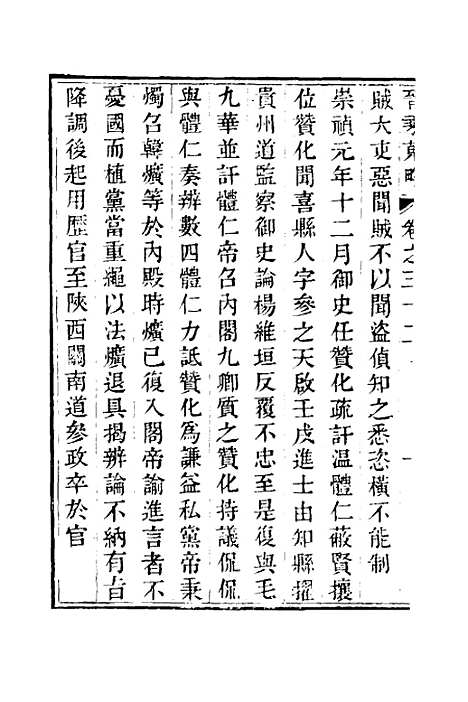 晉乘蒐略 卷之三十二
賊大吏惡聞賊不以聞盜偵知之悉恣橫不能制
崇禎元年十二月御史任贊化疏訐温體仁蔽賢攘
位贊化聞喜縣人字參之天啟壬戌進士由知縣擢
貴州道監察御史論楊維垣反覆不忠至是復與毛
九華並訐體仁帝召內閣九卿質之贊化持議侃侃
與體仁奏辨數四體仁力詆贊化為謙益私黨帝秉
燭召韓爌等於內殿時爌已復入閣帝諭進言者不
憂國而植黨當重繩以法爌退具揭辨論不納有旨
降調後起用歷官至陝西關南道參政卒於官